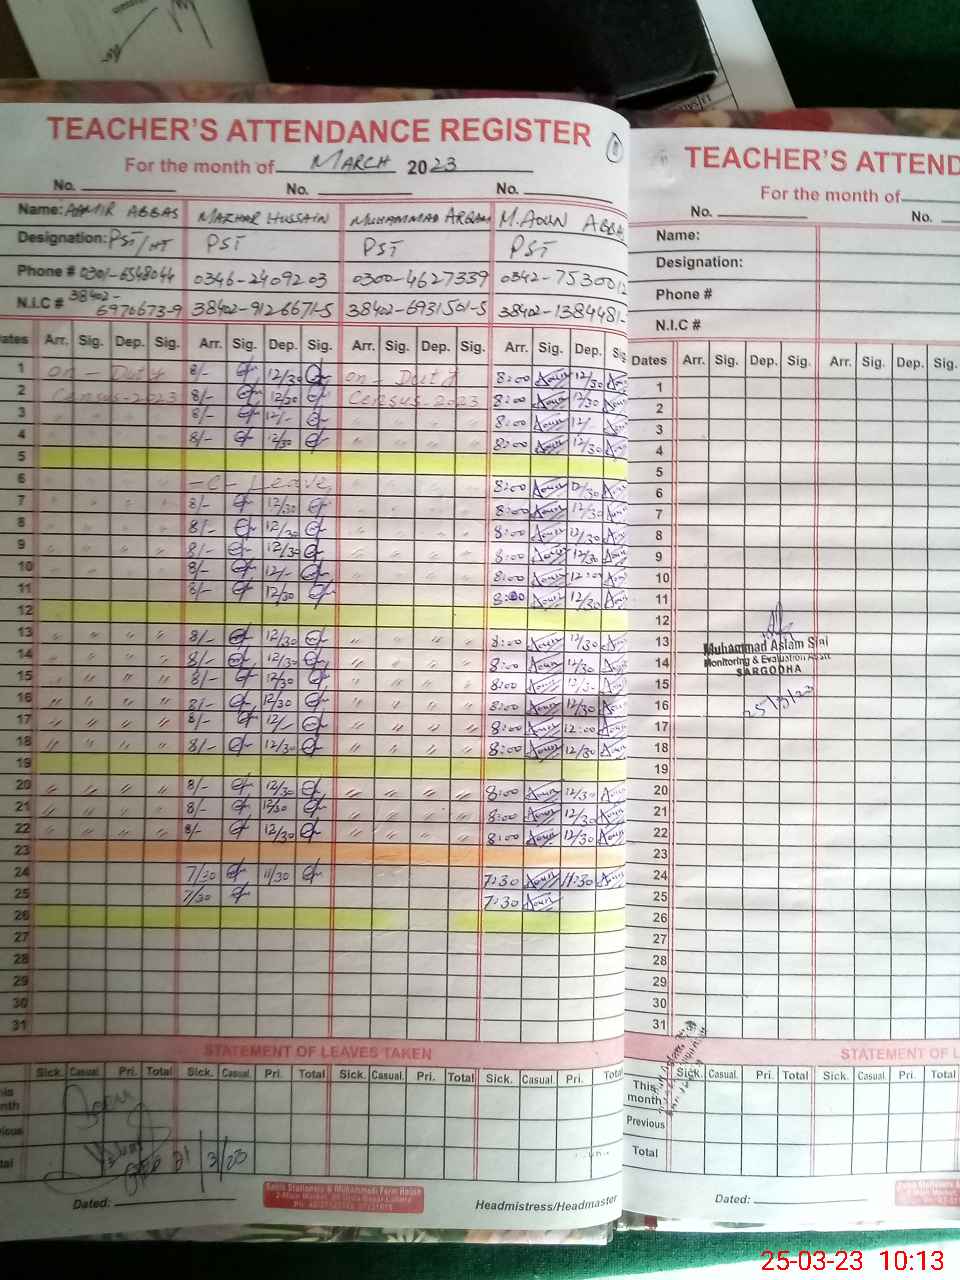 TEACHER'S ATTENDANCE REGISTER
For the month of MARCH 2023
No. No. No.
Name: AAMIR ABBAS MAZHAR HUSSAIN MUHAMMAD M. AOUN
Designation: PST/HT PST PST PST
Phone # 0301-6548044 0346-2409203 0300-4627339 0342-75300
N.I.C # 38402-6970673-9 38402-9126671-5 38402-6931501-5 38402-1384481-
Dates Arr. Sig. Dep. Sig. Arr. Sig. Dep. Sig. Arr. Sig. Dep. Sig. Arr. Sig. Dep. Sig
1 on - Duty 8/- 12/30 on - Duty 8:00 Aoun 12/30 Aoun
2 Census-2023 8/- 12/30 Census-2023 8:00 Aoun 12/30 Aoun
3 8/- 12/- 8:00 Aoun 12/ Aoun
4 8/- 12/30 8:00 Aoun 12/30 Aoun
5
6 -C- Leave 8:00 Aoun 12/30 Aoun
7 8/- 12/30 8:00 Aoun 12/30 Aoun
8 8/- 12/30 8:00 Aoun 12/30 Aoun
9 8/- 12/30 8:00 Aoun 12/30 Aoun
10 8/- 12/- 8:00 Aoun 12:00 Aoun
11 8/- 12/30 8:00 Aoun 12/30 Aoun
12
13 " " " " 8/- 12/30 " " " " 8:00 Aoun 12/30 Aoun
14 " " " " 8/- 12/30 " " " " 8:00 Aoun 12/30 Aoun
15 " " " " 8/- 12/30 " " " " 8:00 Aoun Aoun
16 " " " " 8/- 12/30 " " " " 8:00 Aoun 12/30 Aoun
17 " " " " 8/- 12/- " " " " 8:00 Aoun 12:00 Aoun
18 " " " " 8/- 12/30 " " " " 8:00 Aoun 12/30 Aoun
19
20 " " " " 8/- 12/30 " " " " 8:00 Aoun 12/30 Aoun
21 " " " " 8/- 12/30 " " " " 8:00 Aoun 12/30 Aoun
22 " " " " 8/- 12/30 " " " " 8:00 Aoun 12/30 Aoun
23
24 7/30 11/30 7:30 Aoun 11:30 Aoun
25 7/30 7:30 Aoun
26
27
28
29
30
31
STATEMENT OF LEAVES TAKEN
Sick. Casual. Pri. Total Sick. Casual. Pri. Total Sick. Casual. Pri. Total Sick. Casual. Pri. Total
31/3/23
Dated:
Headmistress/Headmaster
TEACHER'S ATTEND
For the month of
No. No.
Name:
Designation:
Phone #
N.I.C #
Dates Arr. Sig. Dep. Sig. Arr. Sig. Dep. Sig.
1
2
3
4
5
6
7
8
9
10
11
12
13
14
15
16
17
18
19
20
21
22
23
24
25
26
27
28
29
30
31
Muhammad Aslam
Monitoring & Evaluation
SARGODHA
25/3/23
STATEMENT OF L
Sick. Casual. Pri. Total Sick. Casual. Pri. Total
This month
Previous
Total
Dated:
25-03-23 10:13